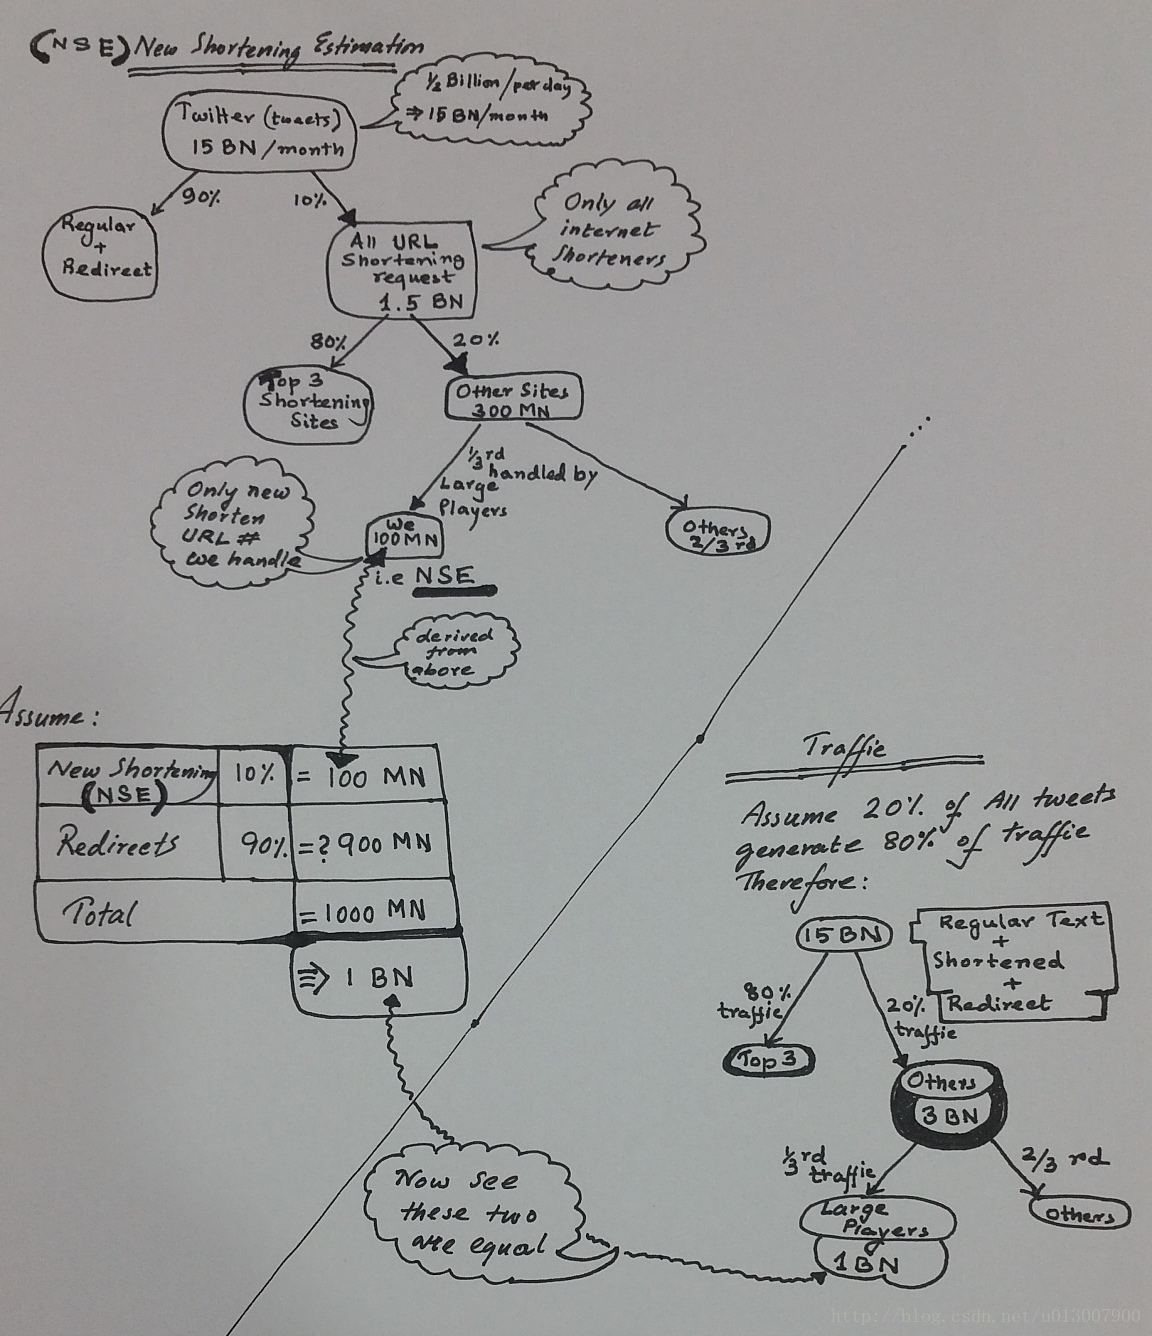 (NSE) New Shortening Estimation
½ Billion/per day
⇒ 15 BN/month
Twitter (tweets)
15 BN/month
90%
10%
Regular
+
Redirect
All URL
Shortening
request
1.5 BN
Only all
internet
shorteners
80%
20%
Top 3
Shortening
Sites
Other Sites
300 MN
⅓rd
handled by
Large
Players
Only new
Shorten
URL #
we handle
We
100MN
i.e NSE
Others
2/3 rd
derived
from
above
Assume:
New Shortening 10% = 100 MN
(NSE)
Redirects 90% =? 900 MN
Total = 1000 MN
⇒ 1 BN
Traffic
Assume 20% of All tweets
generate 80% of traffic
Therefore:
15 BN
Regular Text
+
Shortened
+
Redirect
80%
traffic
20%
traffic
Top 3
Others
3 BN
⅓rd
traffic
2/3 rd
Large
Players
1BN
Others
Now see
these two
are equal
http://blog.csdn.net/u013007900